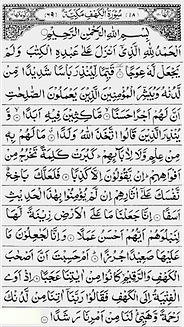 سُوْرَةُ الْكَهْفِ مَكِّيَّةٌ
بِسْمِ اللهِ الرَّحْمٰنِ الرَّحِيْمِ
اَلْحَمْدُ لِلّٰهِ الَّذِيْٓ اَنْزَلَ عَلٰى عَبْدِهِ الْكِتٰبَ وَلَمْ
يَجْعَلْ لَّهٗ عِوَجًا ۝ قَيِّمًا لِّيُنْذِرَ بَاْسًا شَدِيْدًا مِّنْ
لَّدُنْهُ وَيُبَشِّرَ الْمُؤْمِنِيْنَ الَّذِيْنَ يَعْمَلُوْنَ الصّٰلِحٰتِ
اَنَّ لَهُمْ اَجْرًا حَسَنًا ۝ مَّاكِثِيْنَ فِيْهِ اَبَدًا ۝ وَّ
يُنْذِرَ الَّذِيْنَ قَالُوا اتَّخَذَ اللهُ وَلَدًا ۝ مَا لَهُمْ بِهٖ
مِنْ عِلْمٍ وَّلَا لِاٰبَآئِهِمْ كَبُرَتْ كَلِمَةً تَخْرُجُ مِنْ
اَفْوَاهِهِمْ اِنْ يَّقُوْلُوْنَ اِلَّا كَذِبًا ۝ فَلَعَلَّكَ بَاخِعٌ
نَّفْسَكَ عَلٰٓى اٰثَارِهِمْ اِنْ لَّمْ يُؤْمِنُوْا بِهٰذَا الْحَدِيْثِ
اَسَفًا ۝ اِنَّا جَعَلْنَا مَا عَلَى الْاَرْضِ زِيْنَةً لَّهَا
لِنَبْلُوَهُمْ اَيُّهُمْ اَحْسَنُ عَمَلًا ۝ وَاِنَّا لَجٰعِلُوْنَ مَا
عَلَيْهَا صَعِيْدًا جُرُزًا ۝ اَمْ حَسِبْتَ اَنَّ اَصْحٰبَ
الْكَهْفِ وَالرَّقِيْمِ كَانُوْا مِنْ اٰيٰتِنَا عَجَبًا ۝ اِذْ اَوَى
الْفِتْيَةُ اِلَى الْكَهْفِ فَقَالُوْا رَبَّنَآ اٰتِنَا مِنْ لَّدُنْكَ
رَحْمَةً وَّهَيِّئْ لَنَا مِنْ اَمْرِنَا رَشَدًا ۝